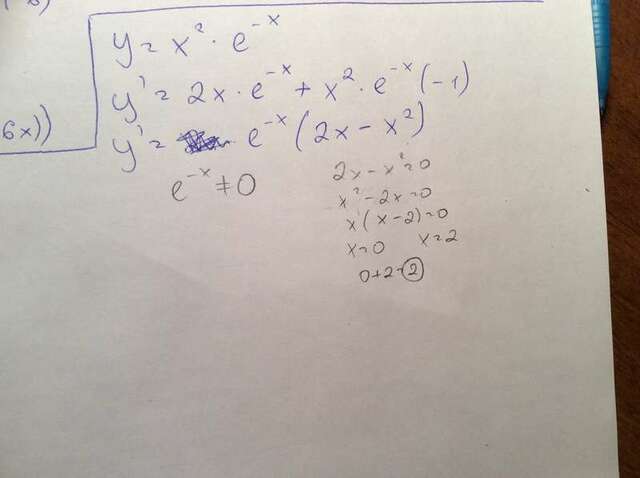 y = x² · e⁻ˣ
y' = 2x · e⁻ˣ + x² · e⁻ˣ (-1)
6x))
y' = e⁻ˣ (2x - x²)
e⁻ˣ ≠ 0
2x - x² = 0
x² - 2x = 0
x(x-2) = 0
x=0 x=2
0+2=2